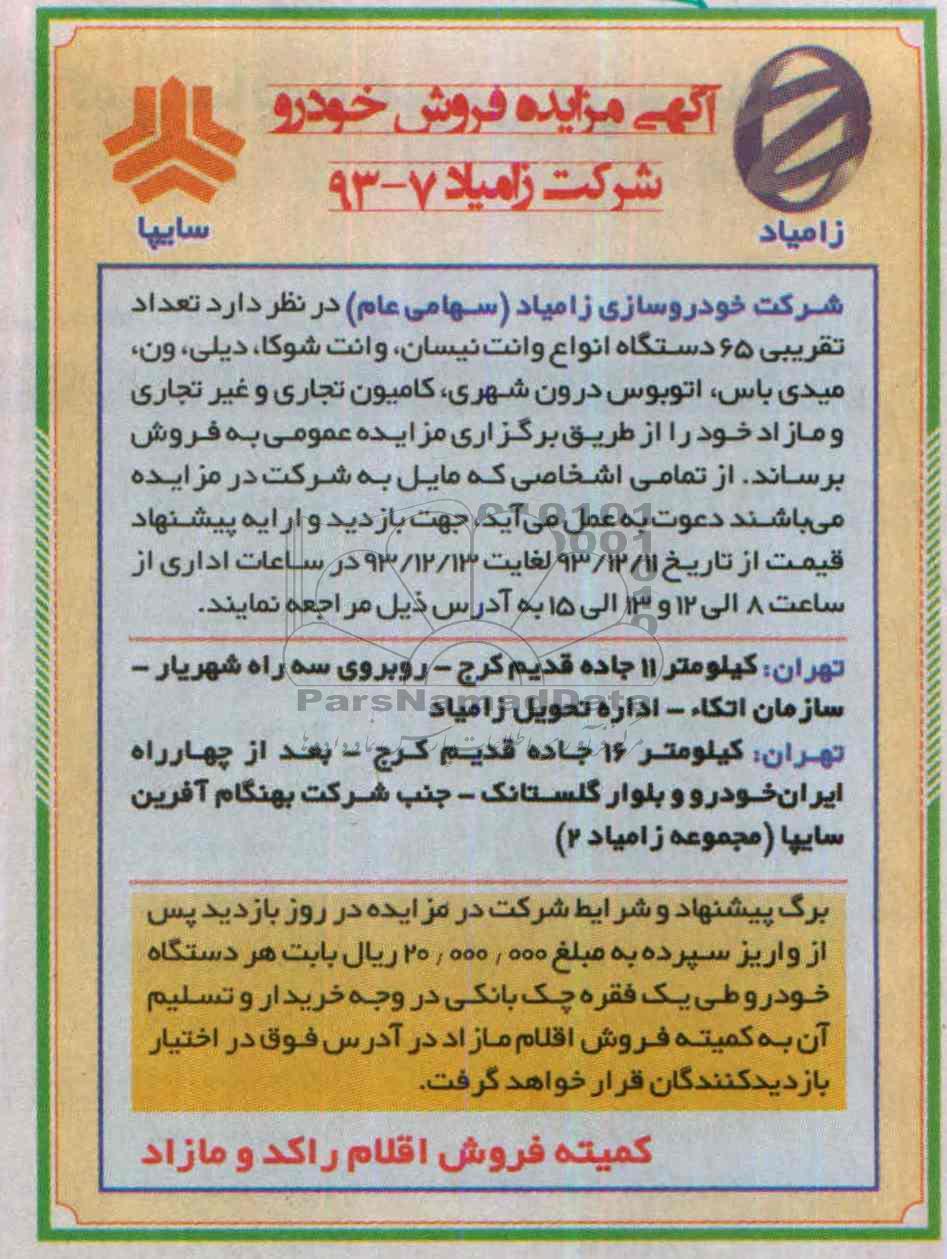 آگهی مزایده فروش خودرو
شرکت زامیاد ۷-۹۳
زامیاد
سایپا
شرکت خودروسازی زامیاد (سهامی عام) در نظر دارد تعداد
تقریبی ۶۵ دستگاه انواع وانت نیسان، وانت شوکا، دیلی، ون،
میدی باس، اتوبوس درون شهری، کامیون تجاری و غیر تجاری
و مازاد خود را از طریق برگزاری مزایده عمومی به فروش
برساند. از تمامی اشخاصی که مایل به شرکت در مزایده
می‌باشند دعوت به عمل می‌آید، جهت بازدید و ارایه پیشنهاد
قیمت از تاریخ ۹۳/۱۲/۱۱ لغایت ۹۳/۱۲/۱۳ در ساعات اداری از
ساعت ۸ الی ۱۲ و ۱۳ الی ۱۵ به آدرس ذیل مراجعه نمایند.
تهران: کیلومتر ۱۱ جاده قدیم کرج - روبروی سه راه شهریار -
سازمان اتکاء - اداره تحویل زامیاد
ParsNamadData
تهران: کیلومتر ۱۶ جاده قدیم کرج - بعد از چهارراه
ایران‌خودرو و بلوار گلستانک - جنب شرکت بهنگام آفرین
سایپا (مجموعه زامیاد ۲)
برگ پیشنهاد و شرایط شرکت در مزایده در روز بازدید پس
از واریز سپرده به مبلغ ۲۰٫۰۰۰٫۰۰۰ ریال بابت هر دستگاه
خودرو طی یک فقره چک بانکی در وجه خریدار و تسلیم
آن به کمیته فروش اقلام مازاد در آدرس فوق در اختیار
بازدیدکنندگان قرار خواهد گرفت.
کمیته فروش اقلام راکد و مازاد